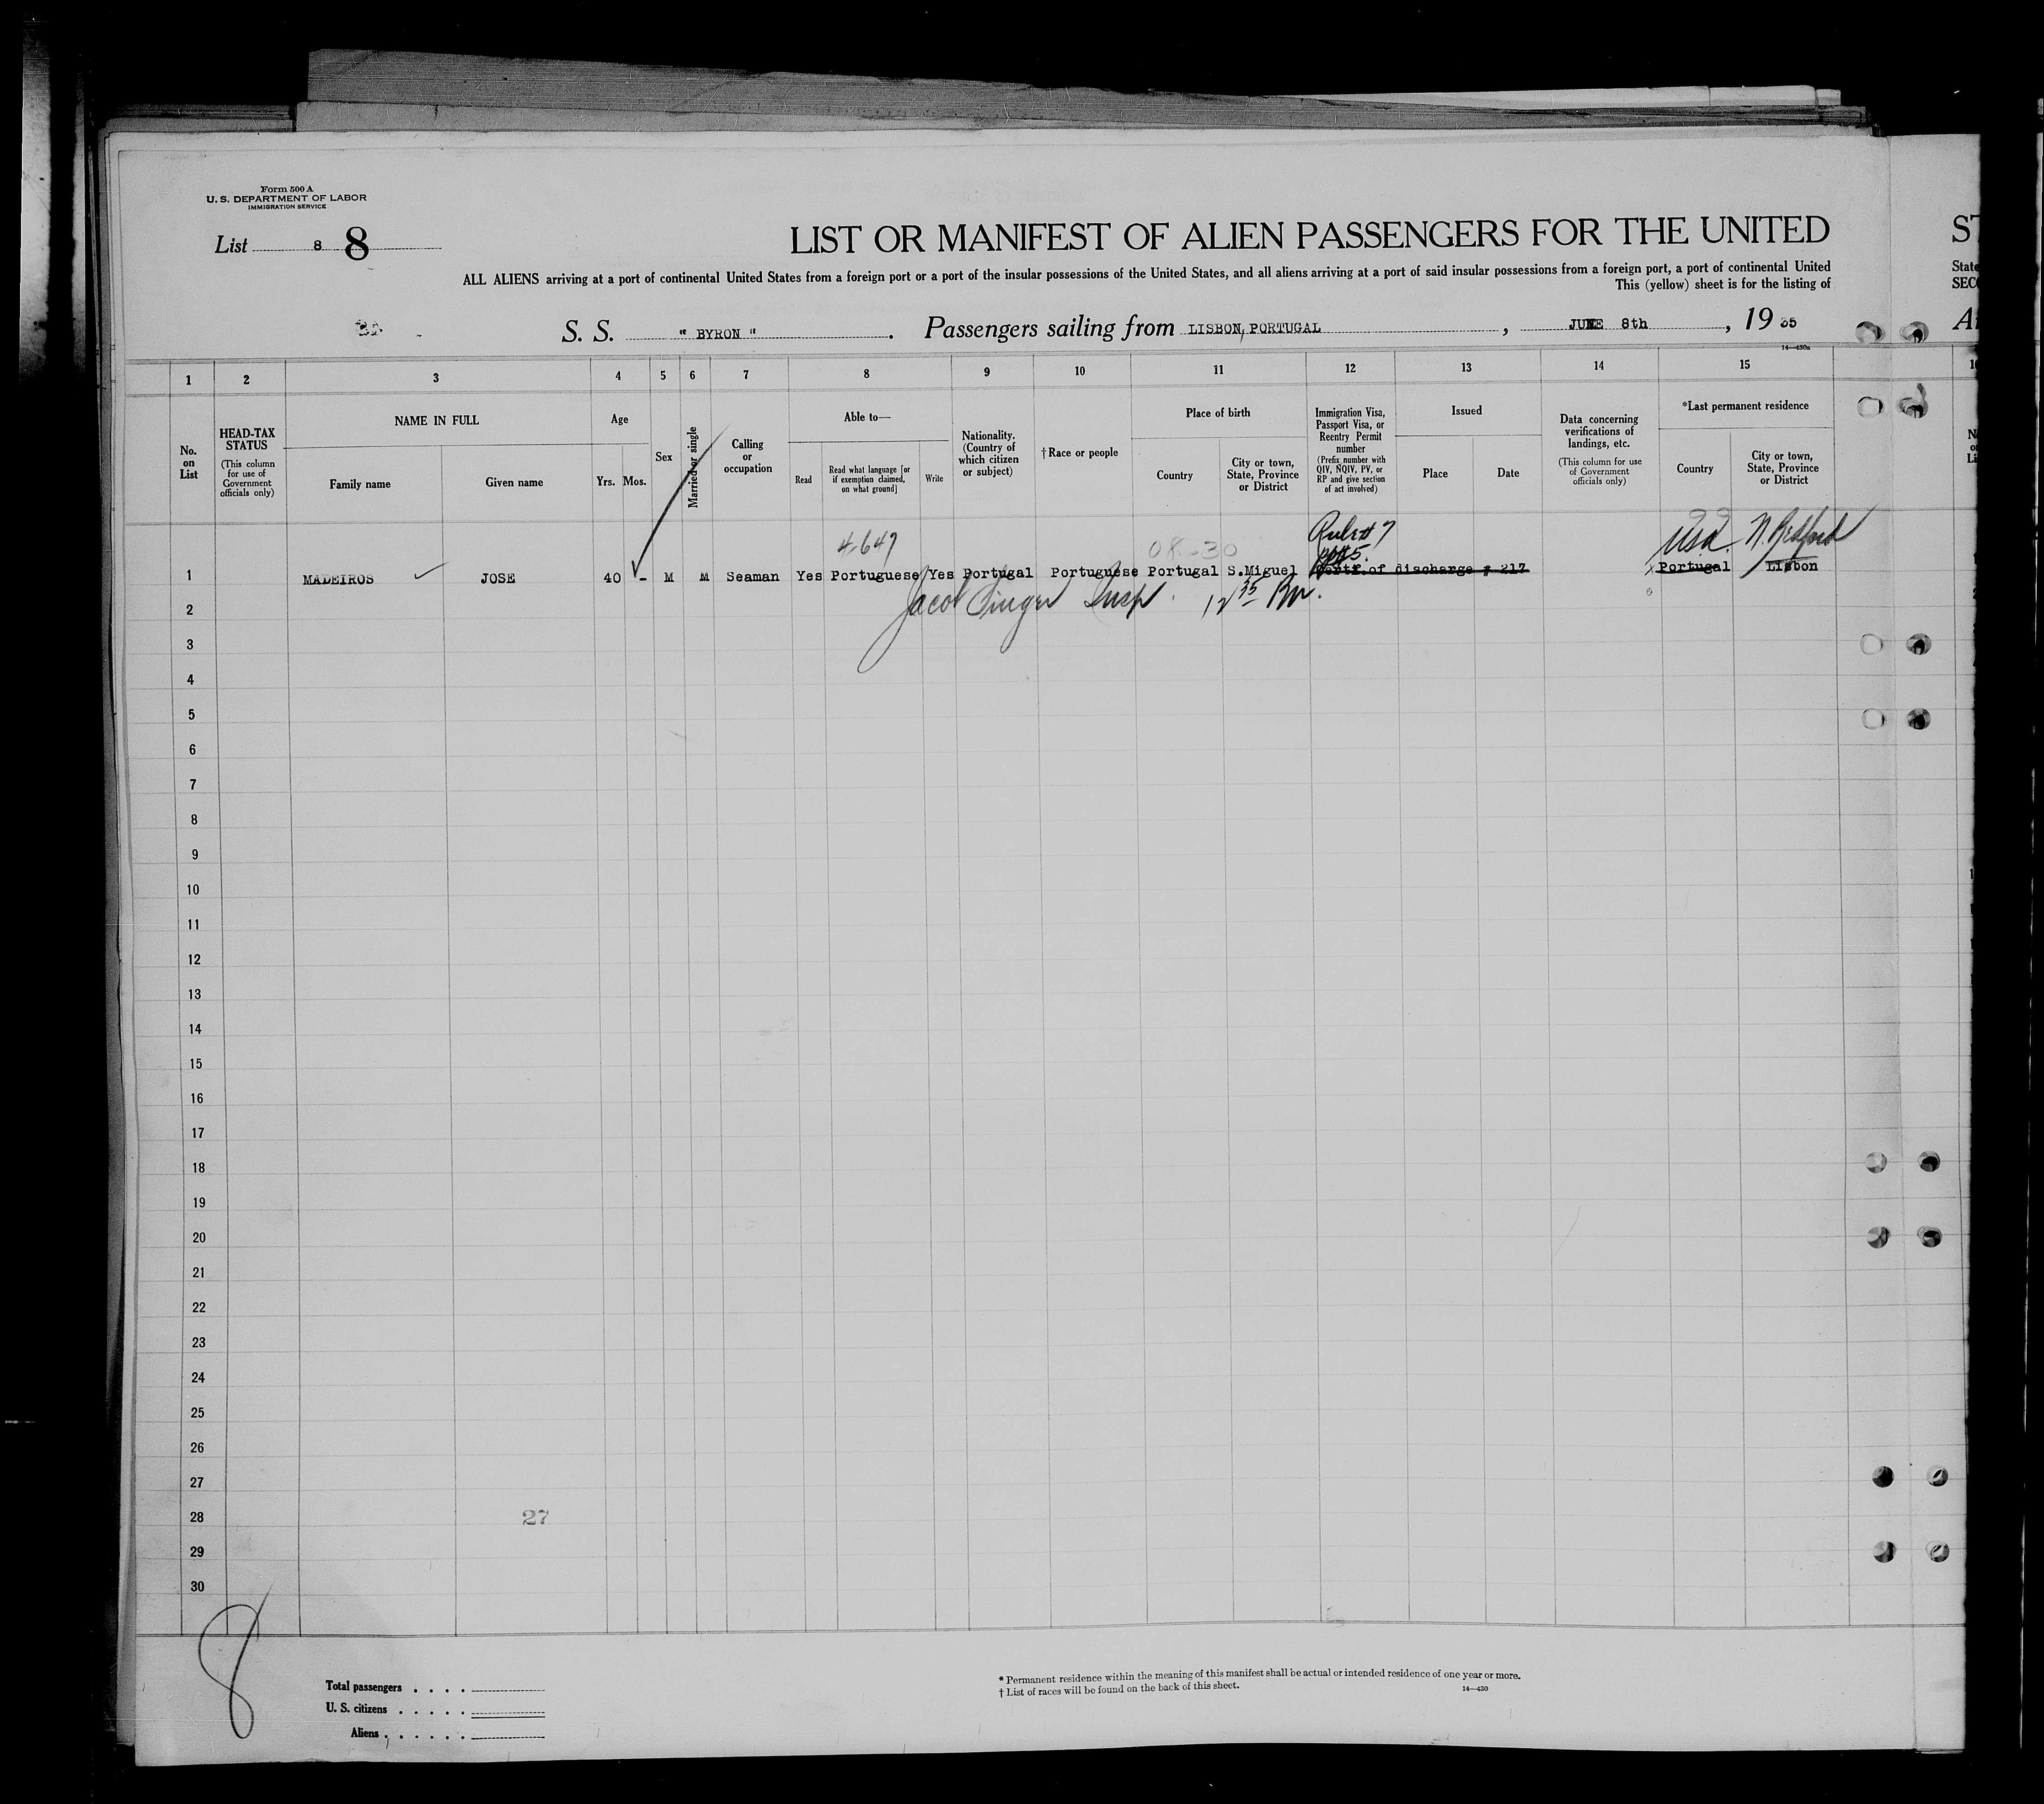 Form 500 A
U. S. DEPARTMENT OF LABOR
IMMIGRATION SERVICE
List 8 8
LIST OR MANIFEST OF ALIEN PASSENGERS FOR THE UNITED
ST
ALL ALIENS arriving at a port of continental United States from a foreign port or a port of the insular possessions of the United States, and all aliens arriving at a port of said insular possessions from a foreign port, a port of continental United
State
This (yellow) sheet is for the listing of
SEC
S. S. " BYRON " . Passengers sailing from LISBON, PORTUGAL , JUNE 8th , 19 35
14—430a
1 2 3 4 5 6 7 8 9 10 11 12 13 14 15
No. on List
HEAD-TAX STATUS
(This column for use of Government officials only)
NAME IN FULL
Family name
Given name
Age
Yrs. Mos.
Sex
Married or single
Calling or occupation
Able to—
Read
Read what language [or if exemption claimed, on what ground]
Write
Nationality. (Country of which citizen or subject)
†Race or people
Place of birth
Country
City or town, State, Province or District
Immigration Visa, Passport Visa, or Reentry Permit number
(Prefix number with QIV, NQIV, PV, or RP and give section of act involved)
Issued
Place
Date
Data concerning verifications of landings, etc.
(This column for use of Government officials only)
*Last permanent residence
Country
City or town, State, Province or District
4-647 08-30 Rule# 7
USA. N. Bedford
1 MADEIROS JOSE 40 - M M Seaman Yes Portuguese Yes Portugal Portuguese Portugal S.Miguel Certf.of discharge # 217 Portugal Lisbon
Jacob Singer Insp.
2
3
4
5
6
7
8
9
10
11
12
13
14
15
16
17
18
19
20
21
22
23
24
25
26
27
28
27
29
30
8
Total passengers . . . .
U. S. citizens . . . . .
Aliens . . . . . .
* Permanent residence within the meaning of this manifest shall be actual or intended residence of one year or more.
† List of races will be found on the back of this sheet.
14—430